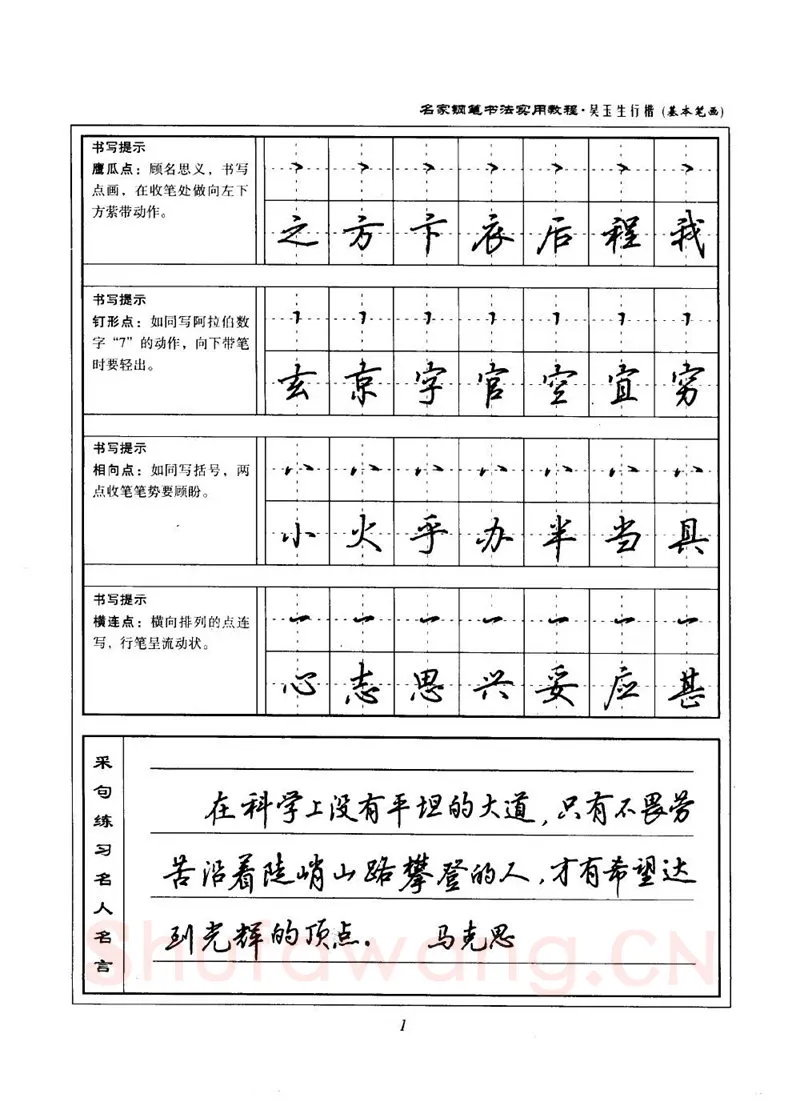 名家钢笔书法实用教程·吴玉生行楷(基本笔画)
书写提示
鹰瓜点：顾名思义，书写
点画，在收笔处做向左下
方萦带动作。
之 方 卞 衣 后 程 我
书写提示
钉形点：如同写阿拉伯数
字“7”的动作，向下带笔
时要轻出。
玄 京 字 官 空 宜 穷
书写提示
相向点：如同写括号，两
点收笔笔势要顾盼。
小 火 乎 办 半 当 具
书写提示
横连点：横向排列的点连
写，行笔呈流动状。
心 志 思 兴 妥 应 甚
采句练习名人名言
在科学上没有平坦的大道，只有不畏劳
苦沿着陡峭山路攀登的人，才有希望达
到光辉的顶点。 马克思
Shufawang.CN
1